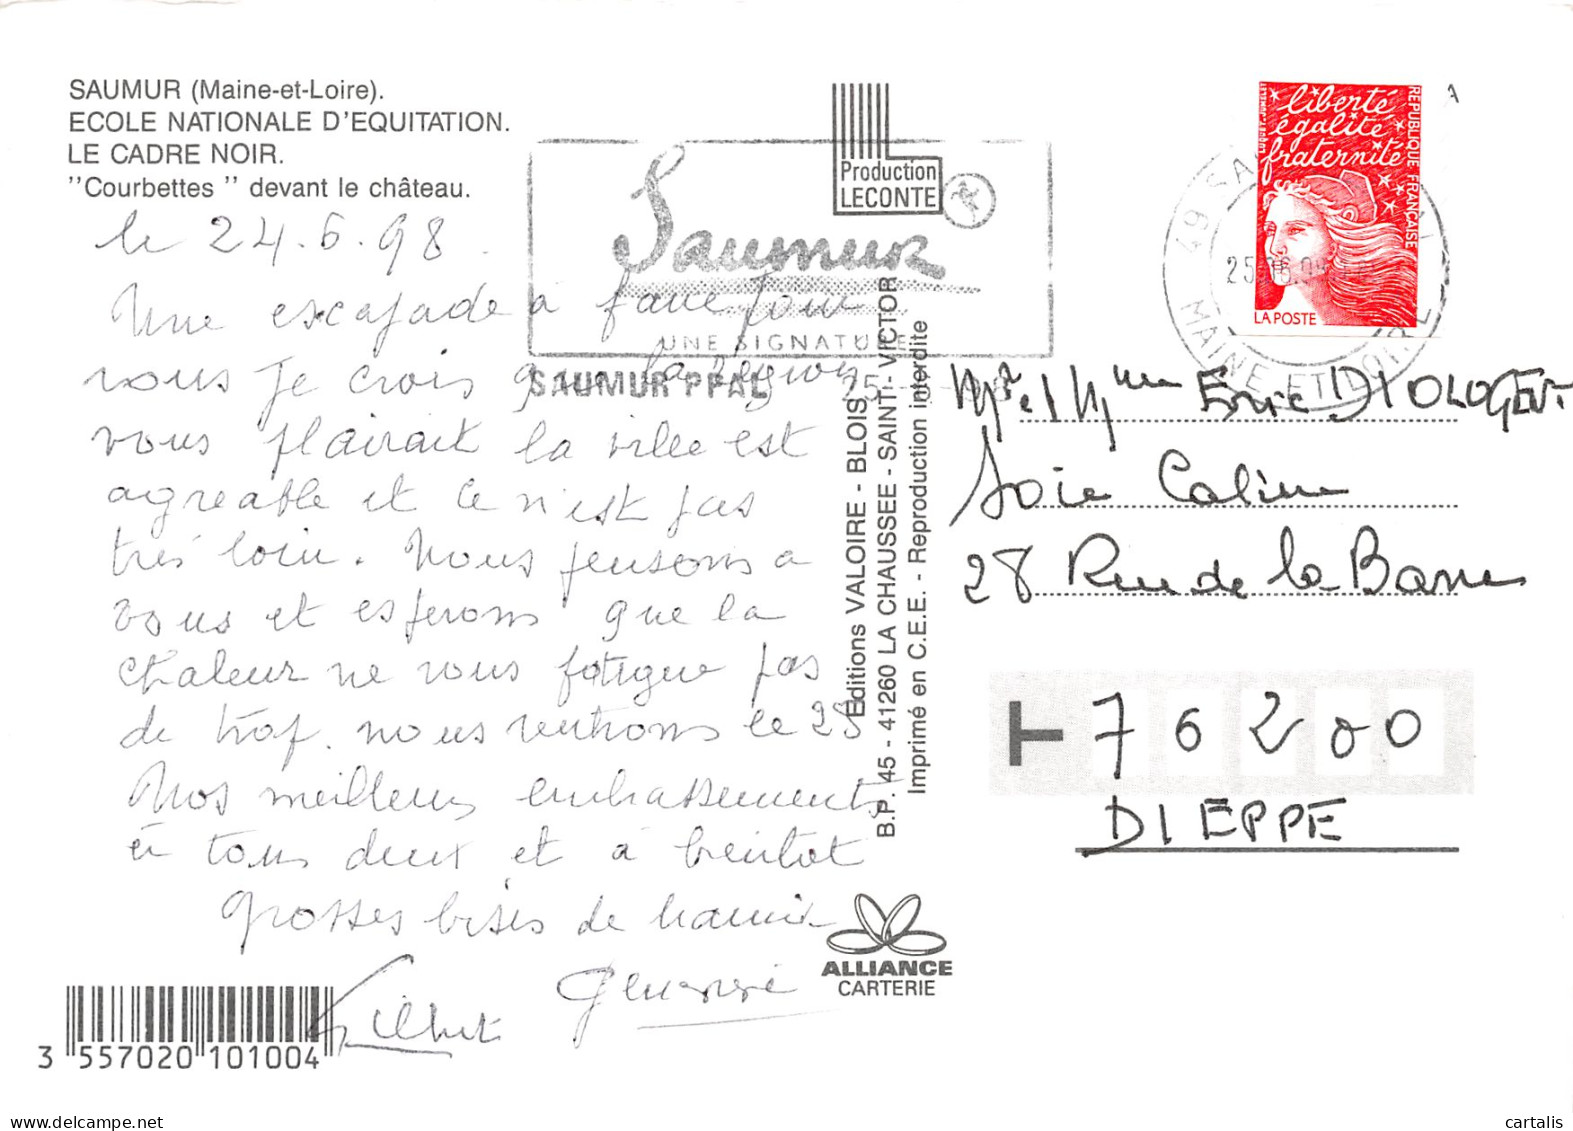 SAUMUR (Maine-et-Loire).
ECOLE NATIONALE D'EQUITATION.
LE CADRE NOIR.
"Courbettes " devant le château.
le 24.6.98
Une escapade à faire pour
nous je crois que la région
vous plairait la ville est
agreable et ce n'est pas
très loin. Nous pensons a
vous et esperons que la
chaleur ne vous fatigue pas
de trop. nous rentrons le 28
Nos meilleurs embrassements
à tous deux et à bientot
grosses bises de mamie
Gilbert Genevieve
3 557020 101004
Production
LECONTE
Saumur
UNE SIGNATURE
SAUMUR PPAL
Editions VALOIRE - BLOIS
B.P. 45 - 41260 LA CHAUSSEE - SAINT - VICTOR
Imprimé en C.E.E. - Reproduction interdite
ALLIANCE
CARTERIE
liberté
égalité
fraternité
REPUBLIQUE FRANÇAISE
LA POSTE
49
MAINE ET LOIRE
Mr et Mme Eric DIOLOGENT
Soie Caline
28 Rue de la Barre
76200
DIEPPE
cartalis